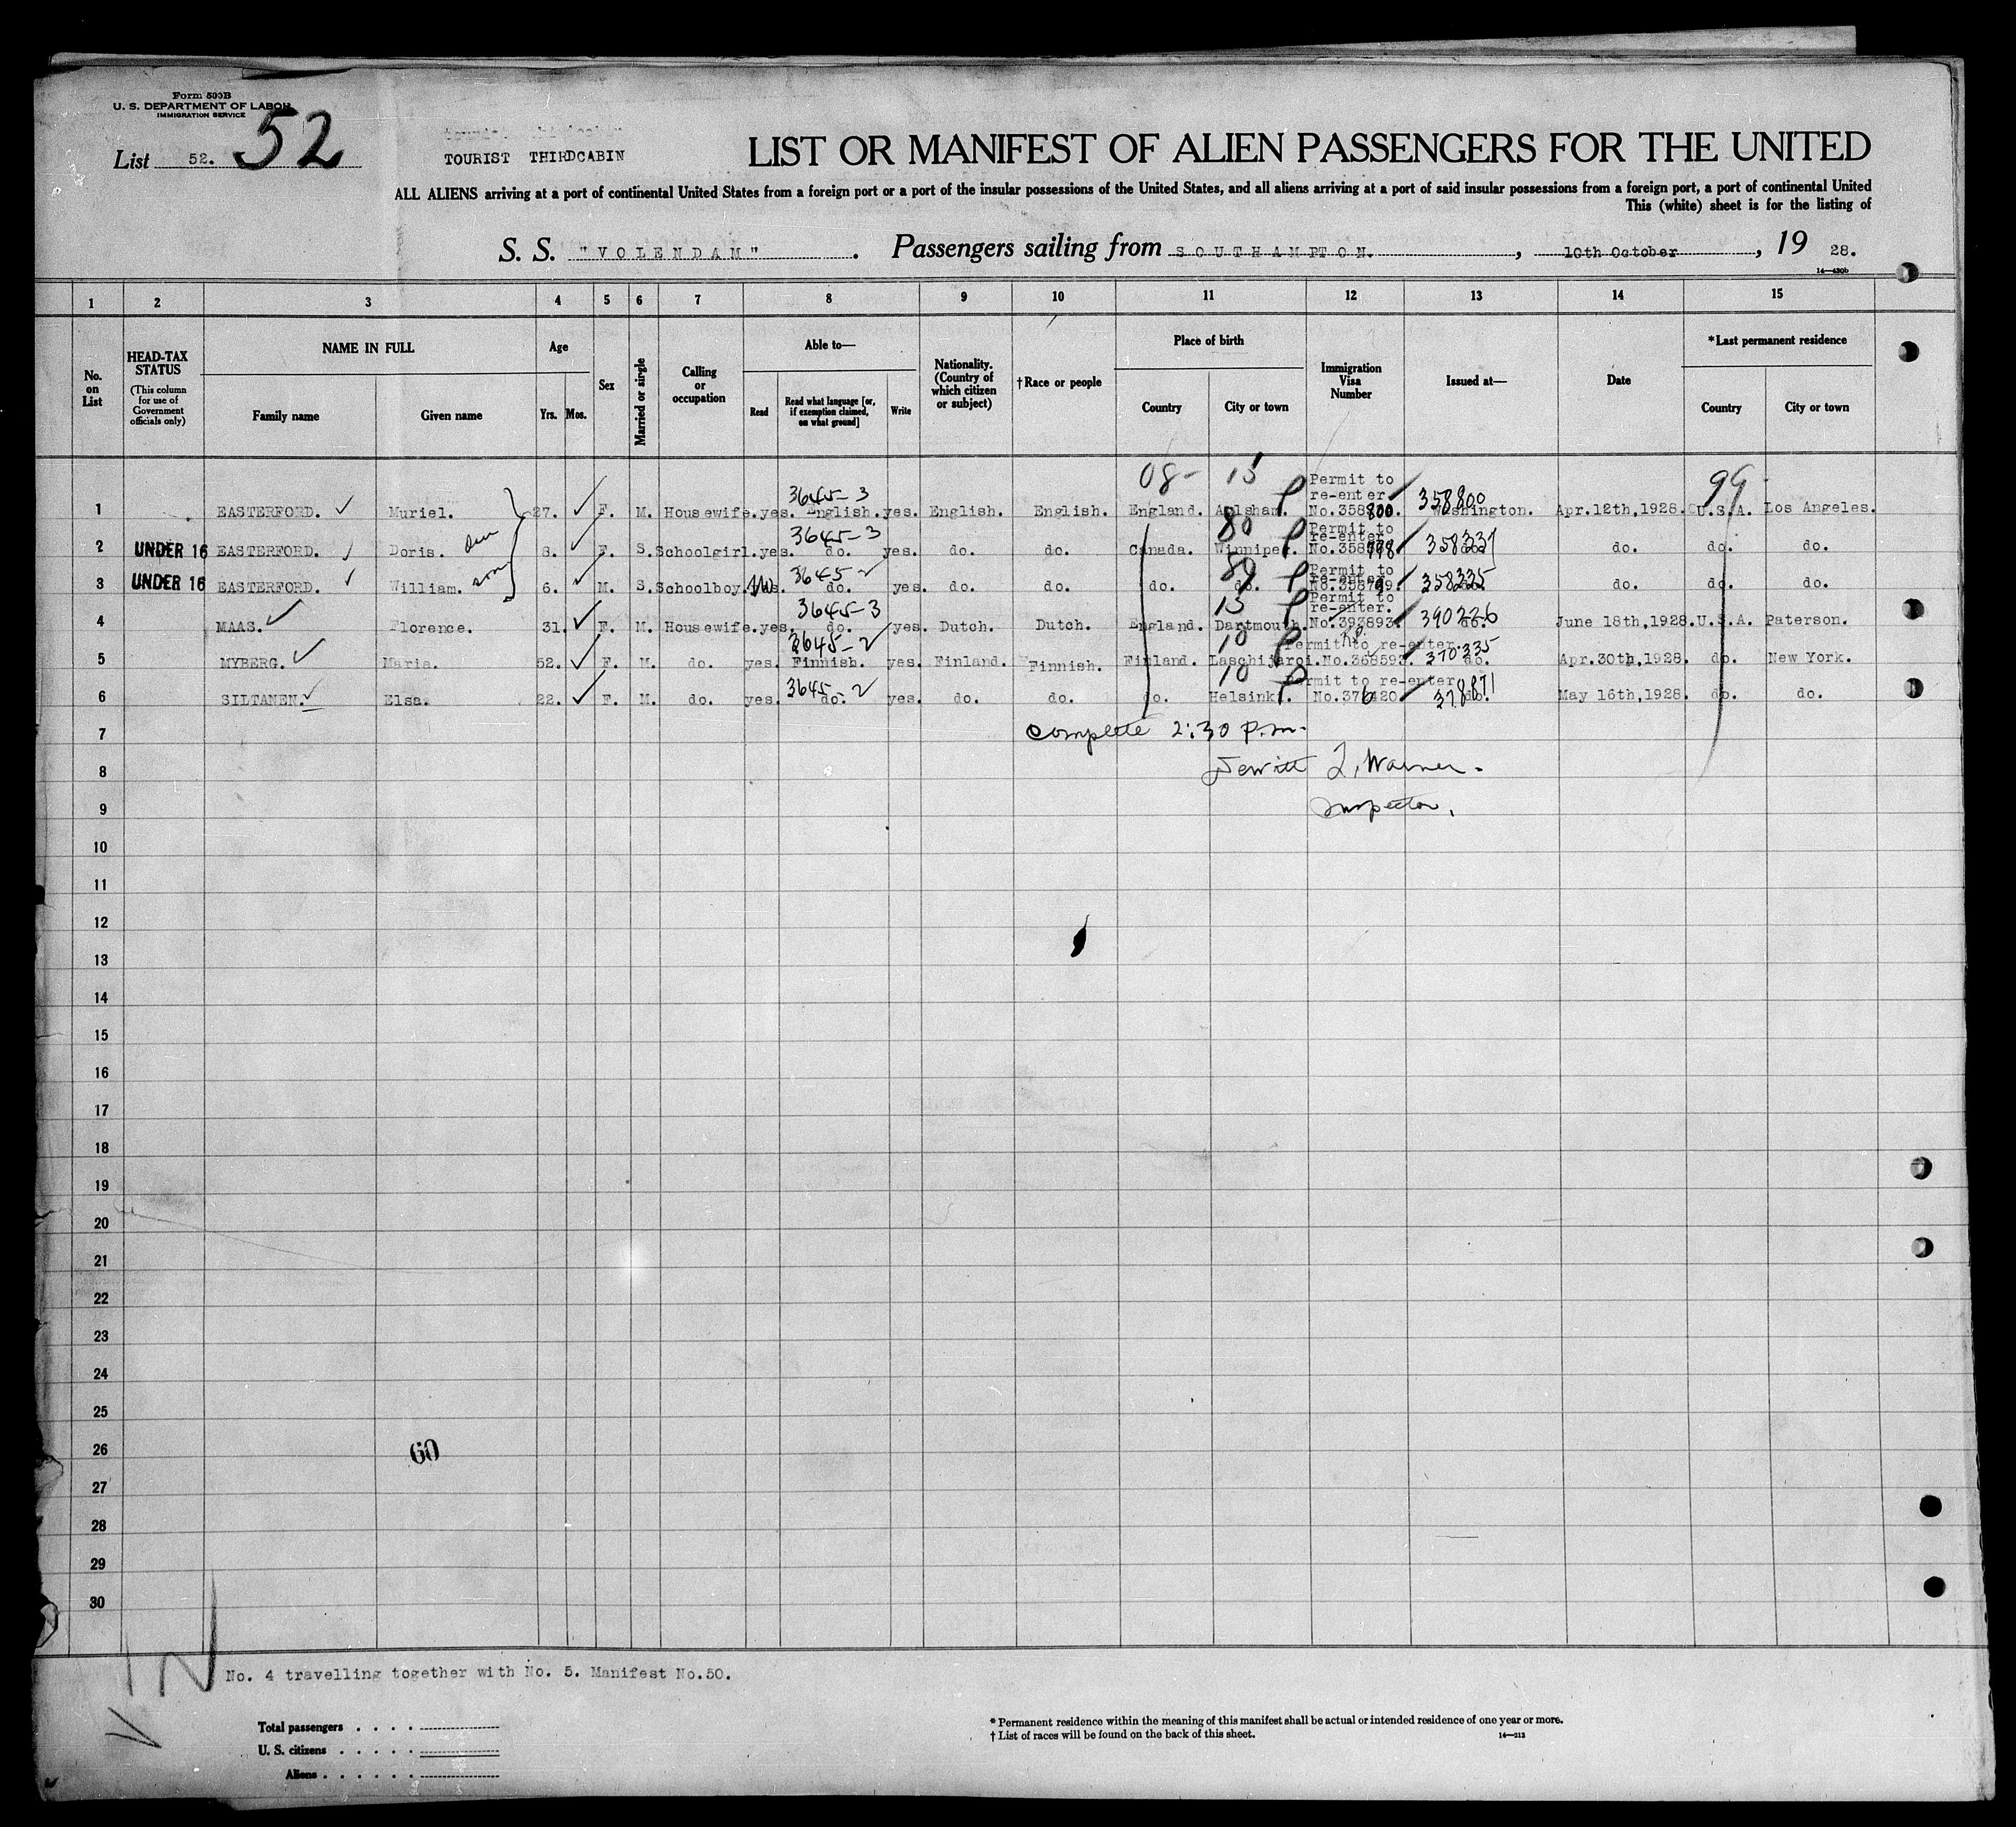 Form 500B
U. S. DEPARTMENT OF LABOR
IMMIGRATION SERVICE
List 52. 52
TOURIST THIRDCABIN
LIST OR MANIFEST OF ALIEN PASSENGERS FOR THE UNITED
ALL ALIENS arriving at a port of continental United States from a foreign port or a port of the insular possessions of the United States, and all aliens arriving at a port of said insular possessions from a foreign port, a port of continental United
This (white) sheet is for the listing of
S. S. "VOLENDAM". Passengers sailing from SOUTHAMPTON., 10th October, 19 28.
14—430b
1 2 3 4 5 6 7 8 9 10 11 12 13 14 15
No. on List
HEAD-TAX STATUS (This column for use of Government officials only)
NAME IN FULL
Family name Given name
Age
Yrs. Mos.
Sex
Married or single
Calling or occupation
Able to—
Read Read what language [or, if exemption claimed, on what ground] Write
Nationality. (Country of which citizen or subject)
†Race or people
Place of birth
Country City or town
Immigration Visa Number
Issued at—
Date
*Last permanent residence
Country City or town
08- 15 99
3645-3 Permit to re-enter 358800
1 EASTERFORD. Muriel. 27. F. M. Housewife. yes. English. yes. English. English. England. No.358800. Washington. Apr.12th,1928. U.S.A. Los Angeles.
3645-3 80 Permit to re-enter
2 UNDER 16 EASTERFORD. Doris. 8. F. S. Schoolgirl. yes. do. yes. do. do. Canada. Winnipeg. do. do. do.
3645-2 80 Permit to re-enter 358335
3 UNDER 16 EASTERFORD. William. son 6. M. S. Schoolboy. do. yes. do. do. do. do. do. do. do.
3645-3 15 Permit to re-enter. 390226
4 MAAS. Florence. 31. F. M. Housewife. yes. do. yes. Dutch. Dutch. England. Dartmouth. No.393893. do. June 18th,1928. U.S.A. Paterson.
3645-2 10 Permit to re-enter. 370335
5 MYBERG. Maria. 52. F. M. do. yes. Finnish. yes. Finland. Finnish. Finland. No.368593. do. Apr.30th,1928. do. New York.
3645-2 10 Permit to re-enter 378871
6 SILTANEN. Elsa. 22. F. M. do. yes. do. yes. do. do. do. Helsinki. do. May 16th,1928. do. do.
7 complete 2:30 p.m.
8 Dewitt Warner.
9 Inspector.
10
11
12
13
14
15
16
17
18
19
20
21
22
23
24
25
26 60
27
28
29
30
No. 4 travelling together with No. 5. Manifest No.50.
Total passengers . . . .
U. S. citizens . . . . .
Aliens . . . . . .
* Permanent residence within the meaning of this manifest shall be actual or intended residence of one year or more.
† List of races will be found on the back of this sheet.
14—213